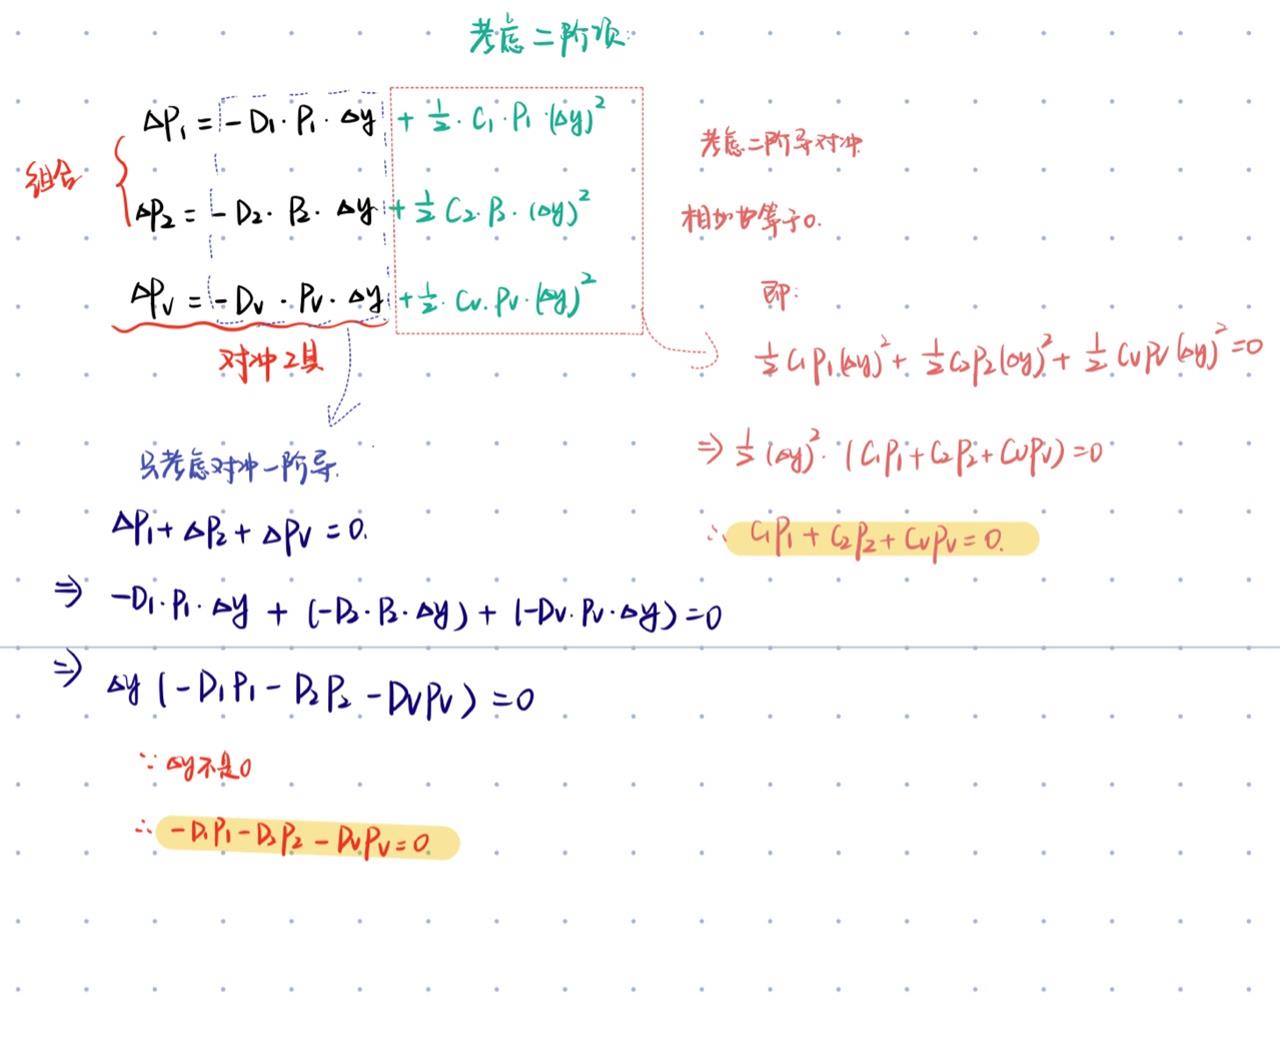 考虑二阶项
ΔP₁ = -D₁·P₁·Δy + ½·C₁·P₁·(Δy)²
组合
ΔP₂ = -D₂·P₂·Δy + ½ C₂·P₂·(Δy)²
ΔPv = -Dv·Pv·Δy + ½·Cv·Pv·(Δy)²
对冲工具
考虑二阶导对冲
相加等于0.
即:
½C₁P₁(Δy)² + ½C₂P₂(Δy)² + ½CvPv(Δy)² = 0
⇒ ½(Δy)²·(C₁P₁+C₂P₂+CvPv)=0
∴ C₁P₁+C₂P₂+CvPv=0.
只考虑对冲一阶导.
ΔP₁+ΔP₂+ΔPv=0.
⇒ -D₁·P₁·Δy + (-D₂·P₂·Δy) + (-Dv·Pv·Δy)=0
⇒ Δy(-D₁P₁-D₂P₂-DvPv)=0
∵ Δy不是0
∴ -D₁P₁-D₂P₂-DvPv=0.